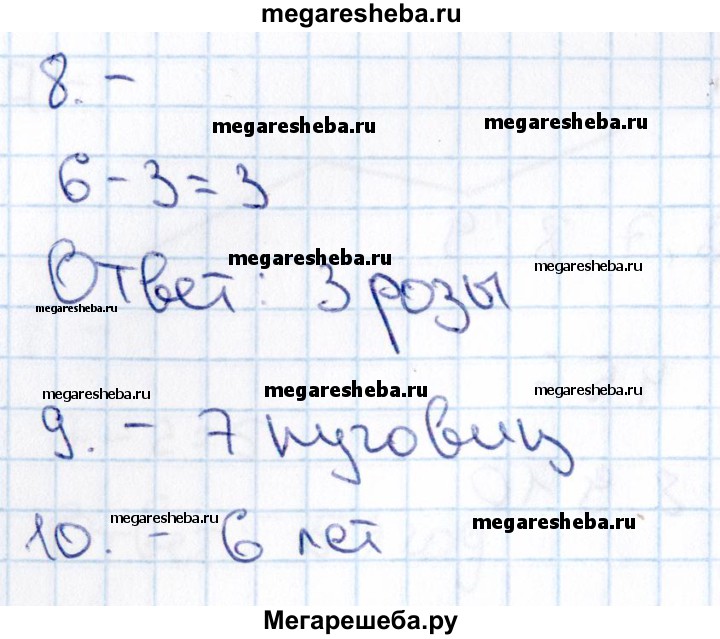 megaresheba.ru
8. -
megaresheba.ru megaresheba.ru
6 - 3 = 3
megaresheba.ru megaresheba.ru
Ответ: 3 розы
megaresheba.ru
megaresheba.ru megaresheba.ru megaresheba.ru
9. - 7 пуговиц
megaresheba.ru megaresheba.ru
10. - 6 лет
Мегарешеба.ру